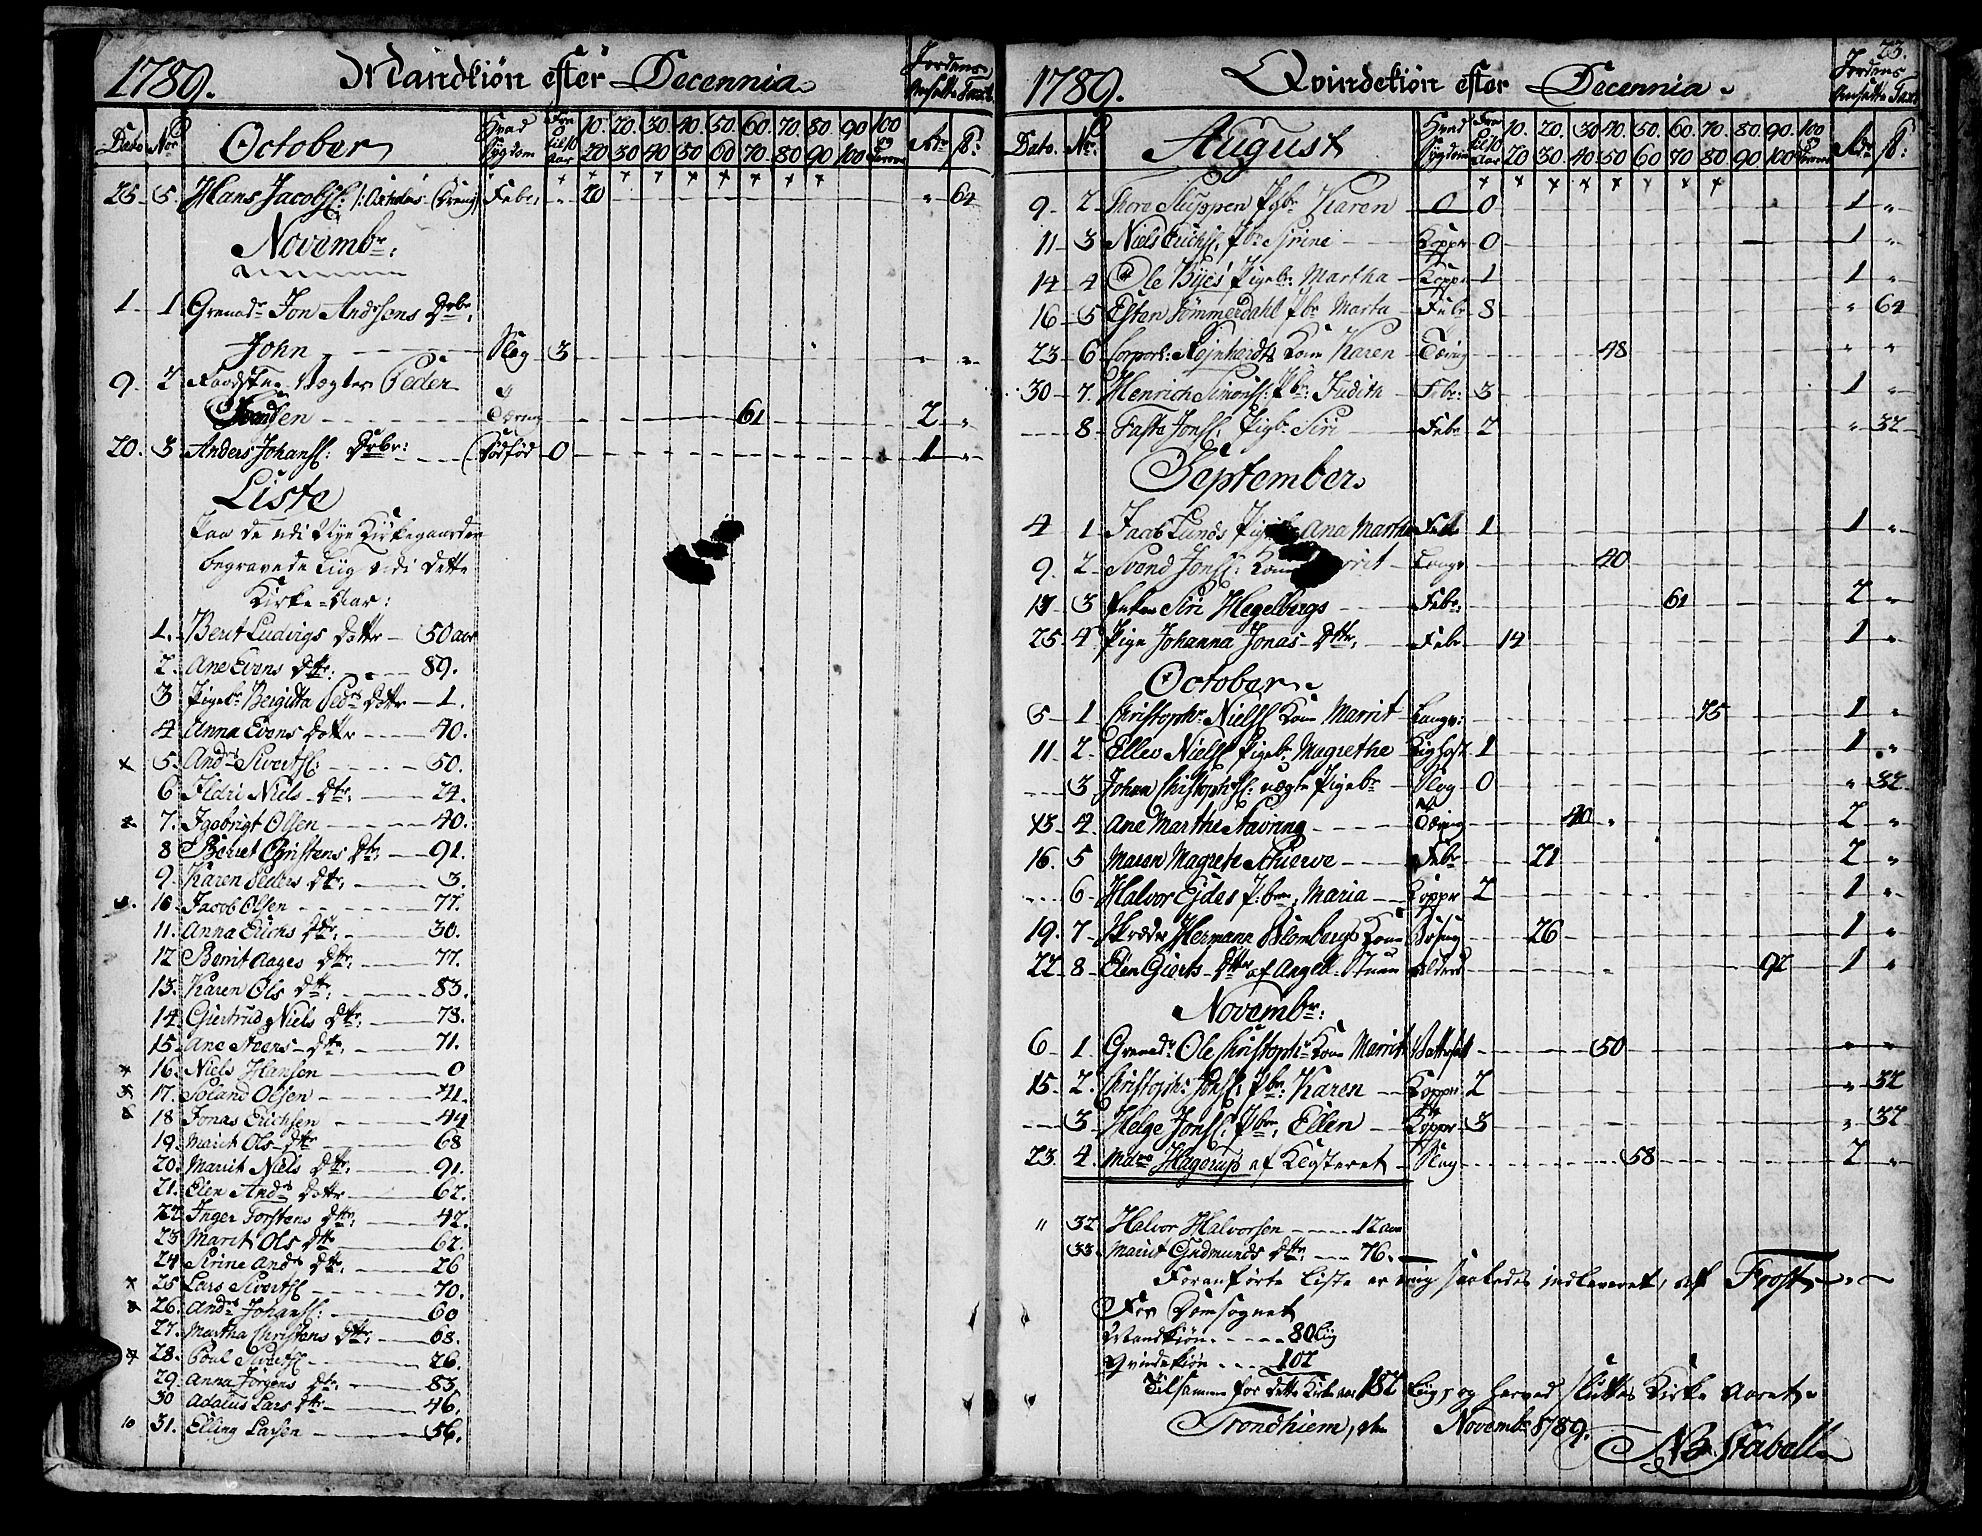 1789. Mandkiön efter Decennia Jordens Ansatte Taxt
Dato No October Hvad Sygdom Fra 0 til 10 Aar 10. 20 20. 30 30. 40 40. 50 50. 60 60. 70. 70. 80 80. 90 90 100 100
25 5. Hans Jacobs: Feber " 20 " 64
Novembr:
1 1 Grenadr Jon Andersens Drbr,
John Slag 3 " "
9. 2 Peder
Tæring 61 2 "
20. 3 Anders Johans: Drbr: Dødfød 0 1 "
Liste
Paa de udi Nye Kirkegaarden
begravede Liig udi dette
Kirke-Aar:
1. Berit Ludvigs Dottr 50 aar
2. Ane Evens Dttr: 89.
3 Pigebr Bergitta Pedrs Dottr 1.
4 Anna Evens Dottr 40.
5. Andrs Sivertss: 50.
6 Ildri Niels Dttr: 24.
7. Ingebrigt Olsen 40.
8 Beret Christens Dttr: 91.
9. Karen Peders Dttr: 3.
10 Jacob Olsen 77.
11. Anna Erichs Dttr: 30.
12 Berit Aages Dttr: 77.
13. Karen Ols Dttr: 83.
14. Giertrud Niels Dttr: 78.
15. Ane Steens Dttr: 71.
16. Niels Hansen 0
17. Soland Olsen 41.
18 Jonas Erichsen 44
19. Marit Ols Dttr 68
20. Marit Niels Dttr: 91.
21. Elen Andrs Dottr 62.
22 Inger Torstens Dttr: 42.
23 Marit Ols Dttr 62.
24 Sirine Andrs Dttr: 26
25 Lars Sivertss 70.
26. Andrs Johanss: 60
27. Martha Christens Dttr: 68.
28. Poul Sivertss 26.
29. Anna Jörgens Dttr: 83
30 Adalus Lars Dttr: 46.
10 31. Elling Larsen 56.
23.
1789. Qvindekiön efter Decennia Jordens Ansatte Taxt
Dato. Nr. August Hvad Sygdom Fra 0 til 10 Aar 10. 20 20. 30. 30 40 40. 50 50. 60 60. 70 70. 80 80. 90 90. 100 100
9. 2. Thore Pigbr Karen 0 0 1 "
11 3 Niels Erichs: Pbr Sirine Kopper 0 1 "
14 4 Ole Byes Pigebr: Martha Kopper 1 1 "
16 5 Esten Sommerdahl Pbr Marta Feber 8 " 64
23 6 Corporl: Reinhardts Kone Karen Tæring 48 " "
30 7. Henrich Simonss: Pbr: Judith Feber: 3 1 "
8 Faste Jonss: Pigbr Siri Feber 2 " 32
September
4 1 Jacob Lunds Ana Martha Feber 1 1 "
9. 2 Svend Jonss: Kone 40
13 3 Enken Siri Hegelbergs Feber: 61 2 "
25. 4 Pige Johanna Jonas Dttr, Feber 14 1 "
October
5 1 Christophr Nielss Kone Marrit 75 1 "
11 2. Ellev Nielss Pigebr Magrethe Kighost 1 1 "
3 Johan Christophss: Pigebr Slag 0 " 32
13 4 Ane Marthe Tæring 40 2 "
16. 5 Maren Magrete Feber 21 2 "
6 Halvor Eides P: bn, Maria Kopper 2 1 "
19. 7 Skreder Hermann Blombergs Kone 26 1 "
22 8 Elen Gierts Dttr af Angell Stuen Alderd 92 1 "
Novembr:
6 1 Grenadr Ole Christophr Kone Marrit 50 " "
15 2. Christophr: Jonss, Pbr: Karen Kopper 2 " 32
3 Helge Jonss, Pbr, Ellen Kopper 3 " 32
23. 4. Mdm Hagerup af Klosteret Slag 58 2 "
" 32 Halvor Halvorsen 12 aar
33. Marit Gudmunds Dttr 76.
Foranførte Liste er mig saaledes indleveret, af Frost
For Domsognet
Mandkiön 80 Liig
Qvindekiön 102
Tilsammen for dette Kirke aar 182 Liig, og hermed sluttes Kirke Aaret
Trondhiem, den Novembr 1789.